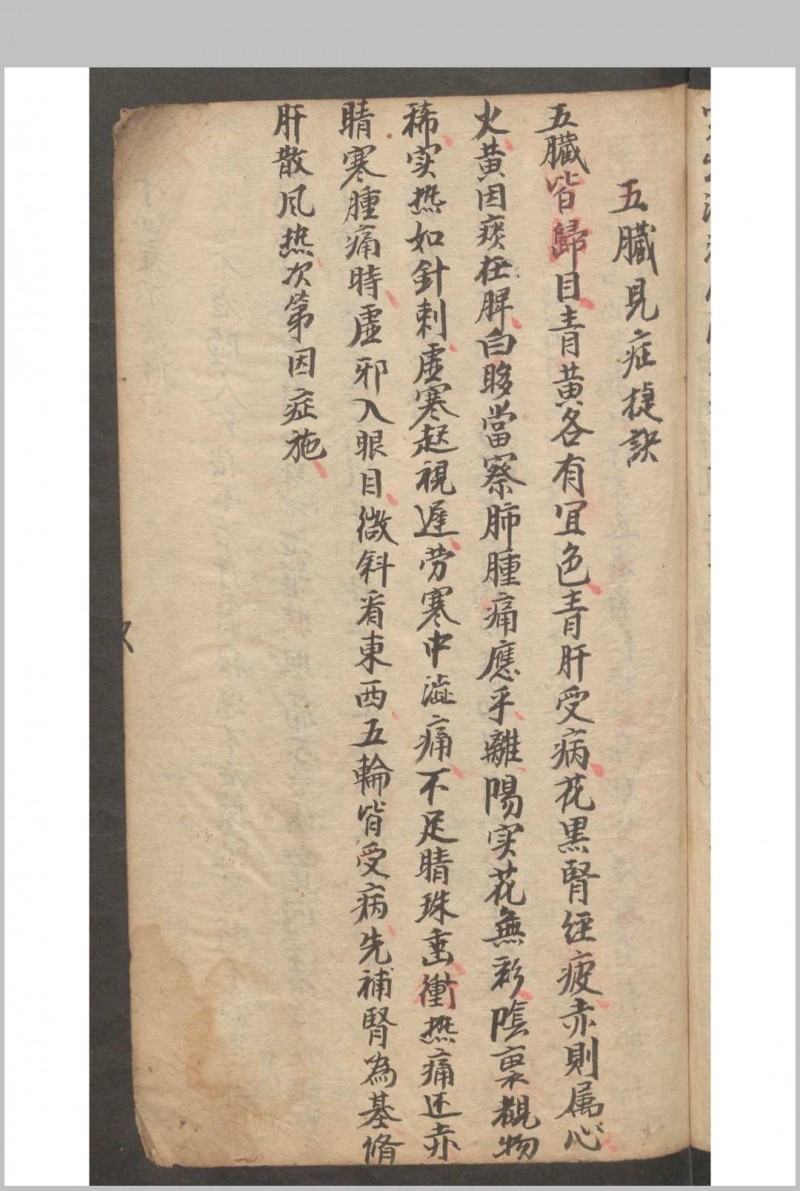 五臟見症捷訣
五臟皆歸目青黃各有宜色青肝受病花黑腎經疲赤則属心
火黃因痰在脾白眵當察肺腫痛應乎離陽实花無彩陰衰覩物
稀实热如針刺虛寒赵視遲劳寒中澁痛不足睛珠衝热痛还赤
睛寒腫痛時虛邪入眼目微斜看東西五輪皆受病先補腎為基脩
肝散风热次第因症施